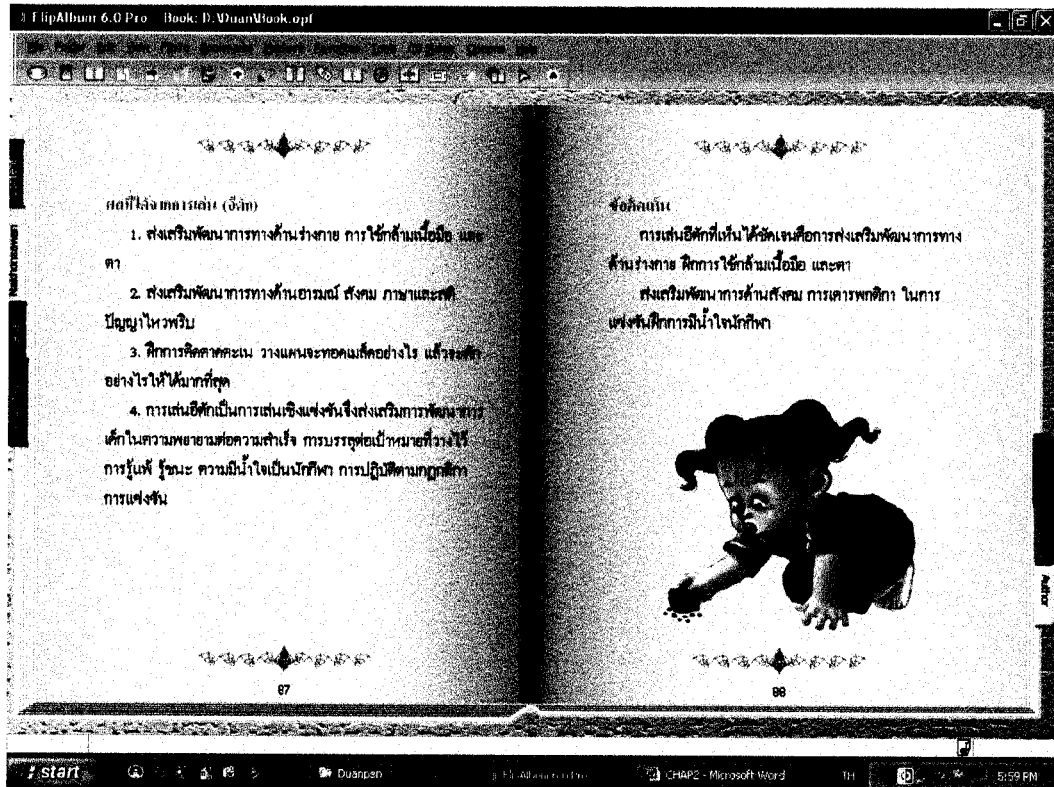 FlipAlbum 6.0 Pro - Book: D:\Duan\Book.opf
ผลที่ได้จากการเล่น (อีตัก)
1. ส่งเสริมพัฒนาการทางด้านร่างกาย การใช้กล้ามเนื้อมือ และ
ตา
2. ส่งเสริมพัฒนาการทางด้านอารมณ์ สังคม ภาษาและสติ
ปัญญาไหวพริบ
3. ฝึกการคิดคาดคะเน วางแผนจะทอดเมล็ดอย่างไร แล้วจะตัก
อย่างไรให้ได้มากที่สุด
4. การเล่นอีตักเป็นการเล่นเชิงแข่งขันจึงส่งเสริมการพัฒนาการ
เด็กในความพยายามต่อความสำเร็จ การบรรลุต่อเป้าหมายที่วางไว้
การรู้แพ้ รู้ชนะ ความมีน้ำใจเป็นนักกีฬา การปฏิบัติตามกฎกติกา
การแข่งขัน
87
ข้อคิดเห็น
การเล่นอีตักที่เห็นได้ชัดเจนคือการส่งเสริมพัฒนาการทาง
ด้านร่างกาย ฝึกการใช้กล้ามเนื้อมือ และตา
ส่งเสริมพัฒนาการด้านสังคม การเคารพกติกา ในการ
แข่งขันฝึกการมีน้ำใจนักกีฬา
88
Author
start
Duanpan
FlipAlbum 6.0 Pro
CHAP2 - Microsoft Word
TH
5:59 PM